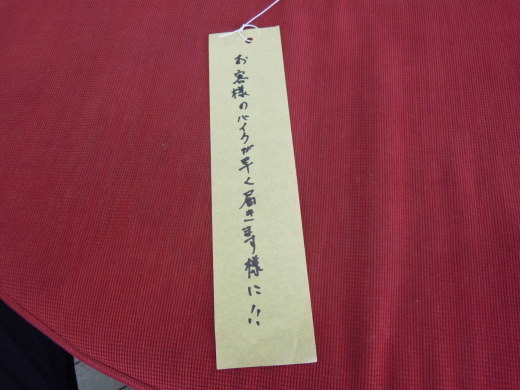 お客様のバイクが早く届きます様に!!